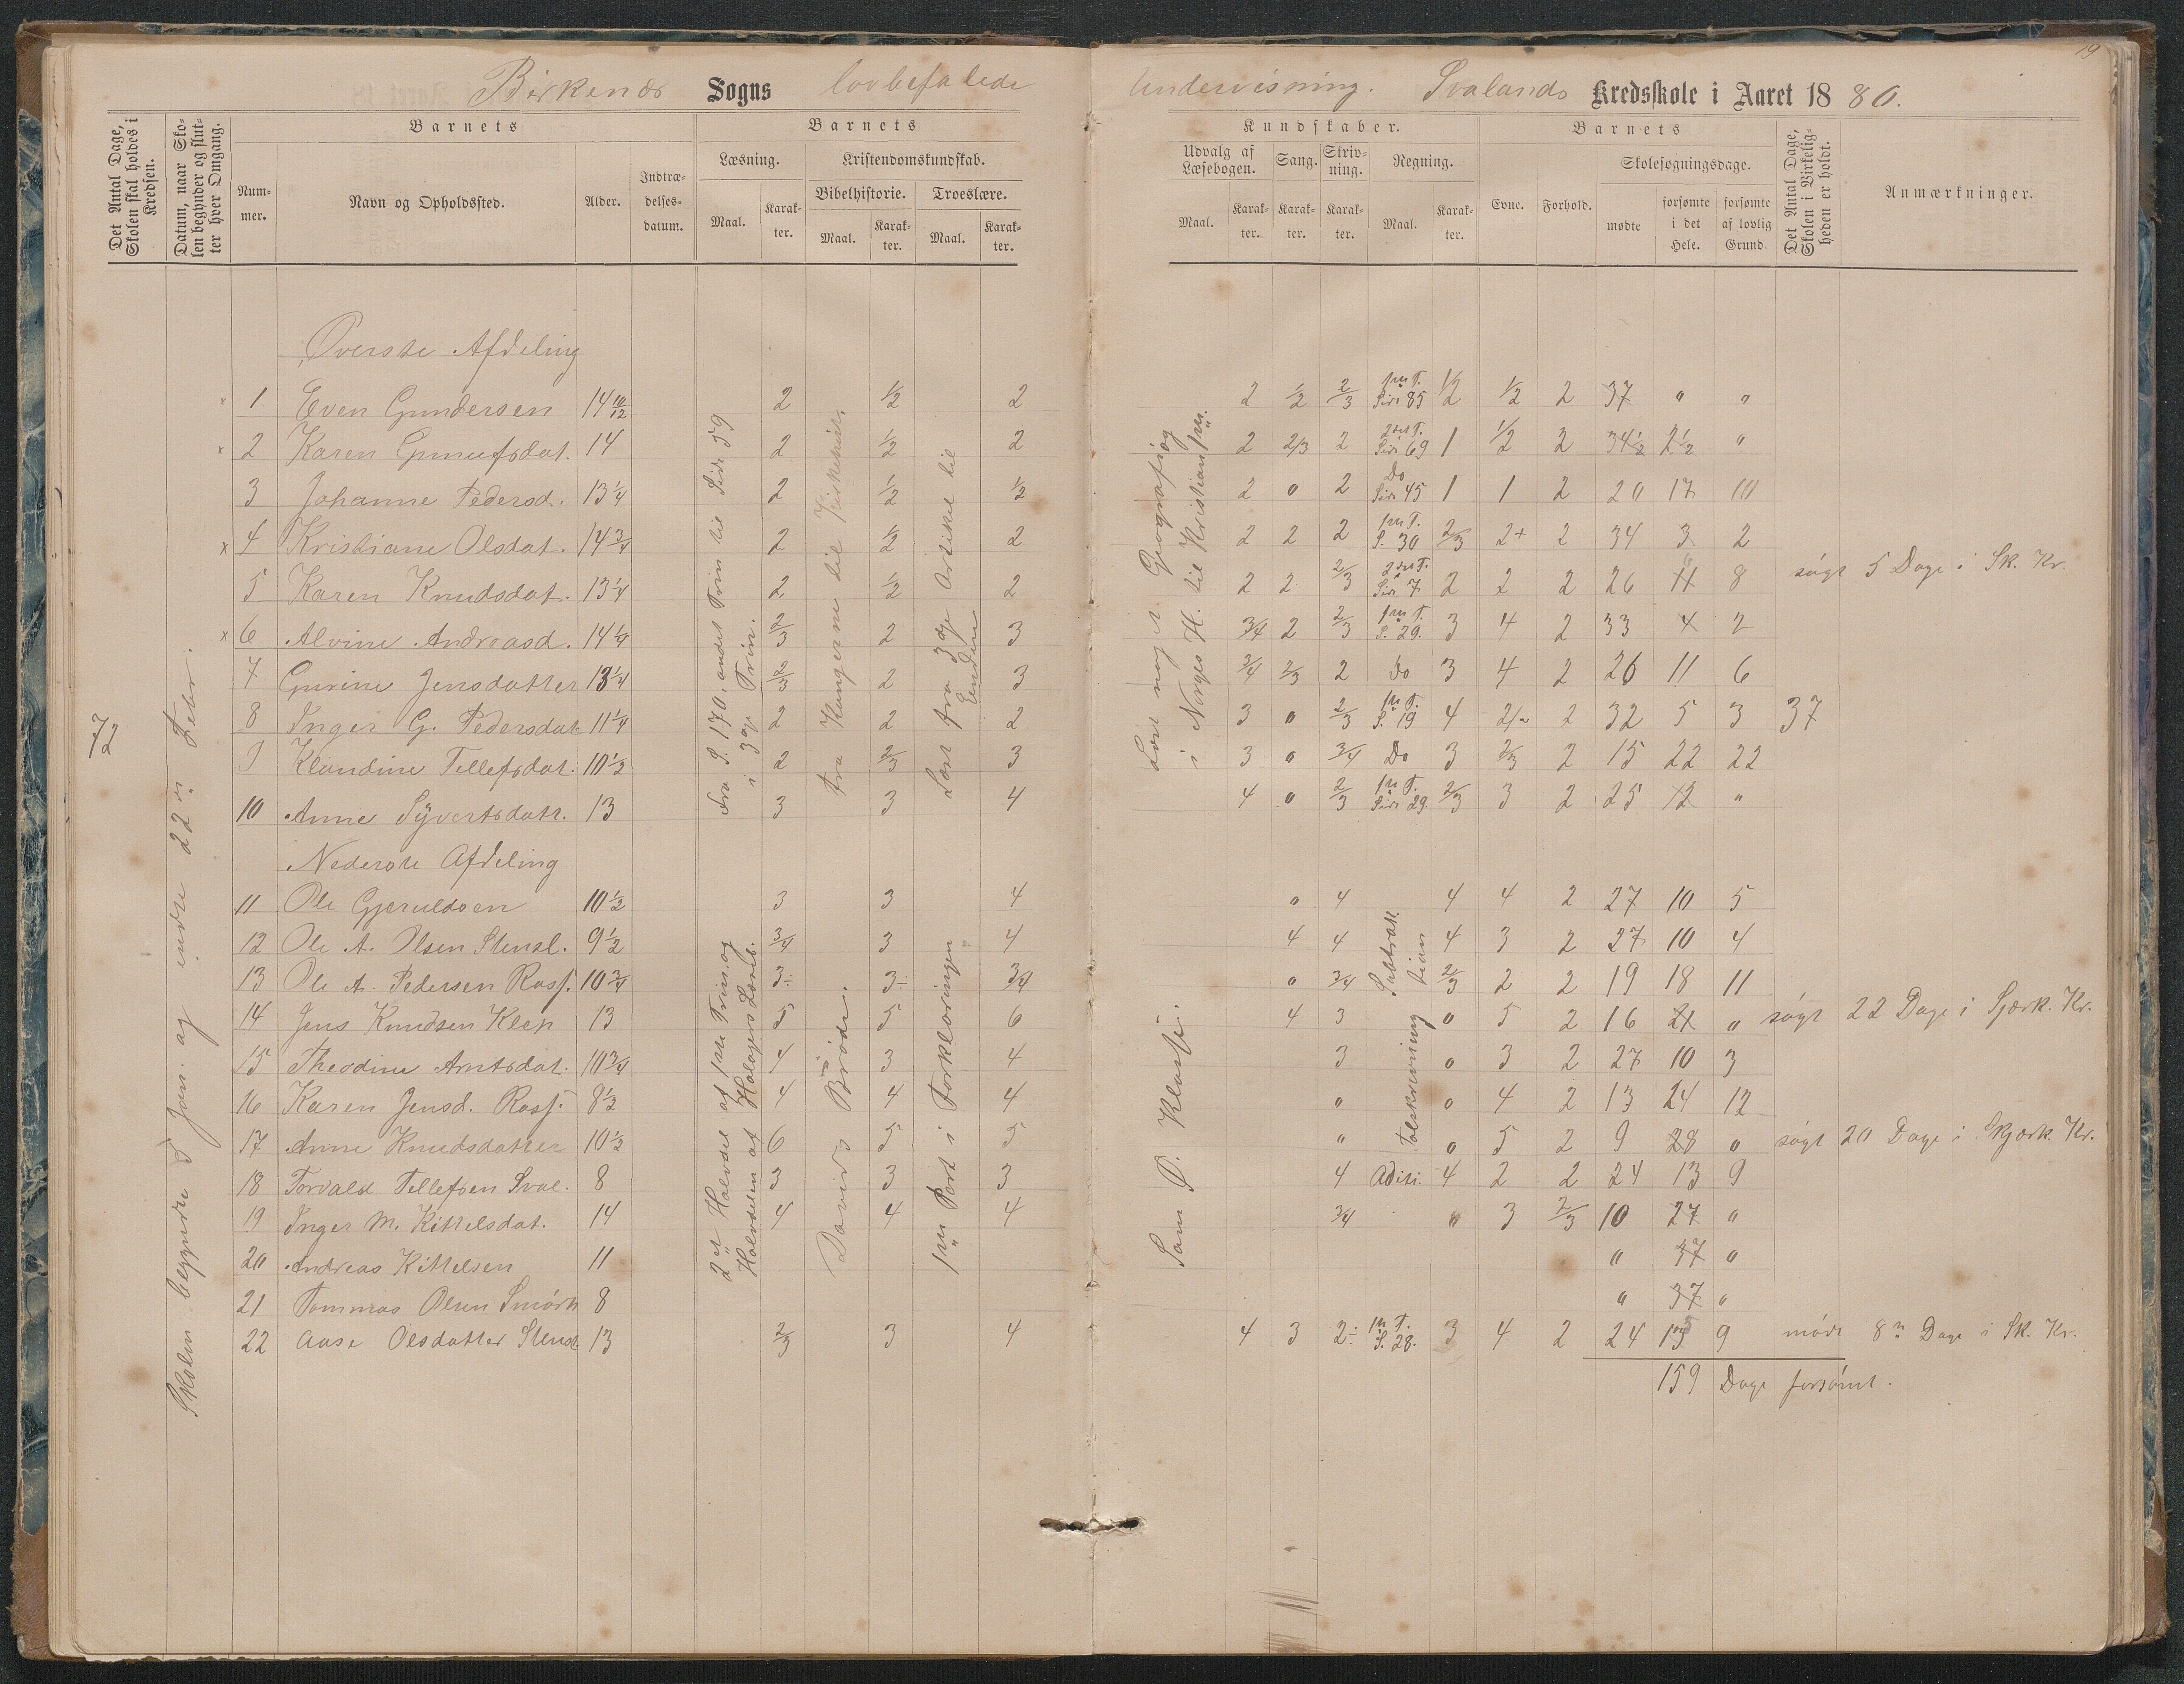 19
Birkenæs Sogns lovbefalede Undervisning. Svalands Kredsskole i Aaret 1880.
Det Antal Dage, Skolen skal holdes i Kredsen.
Datum, naar Skolen begynder og slutter hver Omgang.
Barnets
Nummer.
Navn og Opholdssted.
Alder.
Indtrædelsesdatum.
Barnets
Læsning.
Maal.
Karakter.
Kristendomskundskab.
Bibelhistorie.
Maal.
Karakter.
Troeslære.
Maal.
Karakter.
Kundskaber.
Udvalg af Læsebogen.
Maal.
Karakter.
Sang.
Karakter.
Skrivning.
Karakter.
Regning.
Maal.
Karakter.
Barnets
Evne.
Forhold.
Skolesøgningsdage.
mødte
forsømte i det Hele.
forsømte af lovlig Grund.
Det Antal Dage, Skolen i Virkeligheden er holdt.
Anmærkninger.
72
Skolen begyndte 5 Jan. og endte 22de Febr.
Øverste Afdeling
x 1 Even Gundersen 14 10/12 2 1/2 2 2 1/2 2/3 1ste T. Side 85 1/2 1/2 2 37 " "
x 2 Karen Gunnufsdat. 14 2 1/2 2 2 2/3 2 2det T. Side 69 1 1/2 2 34 1/2 2 1/2 "
3 Johanne Pedersd. 13 1/4 2 1/2 1/2 2 0 2 Do Side 45 1 1 2 20 17 10
x 4 Kristiane Olsdat. 14 3/4 2 1/2 2 2 2 2 1ste T. S. 30 2/3 2+ 2 34 3 2
5 Karen Knudsdat. 13 1/4 2 1/2 2 2 2 2/3 2det T. Side 7 2 2 2 26 11 8 søgt 5 Dage i Sk. Kr.
x 6 Alvine Andreasd. 14 1/4 2/3 2 3 3/4 2 2/3 1ste T. S. 29. 3 4 2 33 4 2
7 Gurine Jensdatter 13 1/4 2/3 2 3 3/4 2/3 2 Do 3 4 2 26 11 6
8 Inger G. Pedersdat. 11 1/4 2 2 2 3 0 2/3 1ste T. S. 19 4 2 32 5 3 37
9 Klaudine Tellefsdat. 10 1/2 2 2/3 3 3 0 3/4 Do 3 2/3 2 15 22 22
10 Anne Syvertsdatr. 13 3 3 4 4 0 2/3 1ste T. Side 29. 2/3 3 2 25 12 "
fra S. 170, andet Trin til Side 59 i 3die Trin.
fra Kongerne til Kirkehist.
Læst fra 3die Artikel til Enden
Læst noget Geografi og i Norges H. til Kristian 1ste.
Nederste Afdeling
11 Ole Gjeruldsen 10 1/2 3 3 4 0 4 4 4 2 27 10 5
12 Ole A. Olsen Stensl. 9 1/2 3/4 3 4 4 4 4 3 2 27 10 4
13 Ole A. Pedersen Rosf. 10 3/4 3÷ 3÷ 3/4 0 3/4 2/3 2 2 19 18 11
14 Jens Knudsen Klep 13 5 5 6 4 3 0 5 2 16 21 " søgt 22 Dage i Sk. Kr.
15 Theodine Arntsdat. 10 3/4 4 3 4 3 0 3 2 27 10 3
16 Karen Jensd. Rosf. 8 1/2 4 4 4 " 0 4 2 13 24 12
17 Anne Knudsdatter 10 1/2 6 5 5 " 0 5 2 9 28 0 søgt 20 Dage i Skjærk. Kr.
18 Torvald Tellefsen Sval. 8 3 3 3 4 Aditi. 4 2 2 24 13 9
19 Inger M. Kittelsdat. 14 4 4 4 3/4 " 3 2/3 10 27 "
20 Andreas Kittelsen 11 " 37 "
21 Tommas Olsen Smørh 8 " 37 "
22 Aase Olsdatter Stensl. 13 2/3 3 4 4 3 2÷ 1ste T. S. 28. 3 4 2 24 13 9 mødt 8 Dage i Sk. Kr.
2det Halvdel af 1ste Trin og Halvdelen af Holagers Læseb.
Davids Brødre.
1ste Part i Forklaringen
Som Ø. Klasse.
Subtraktion
Talskrivning
159 Dage forsømt.